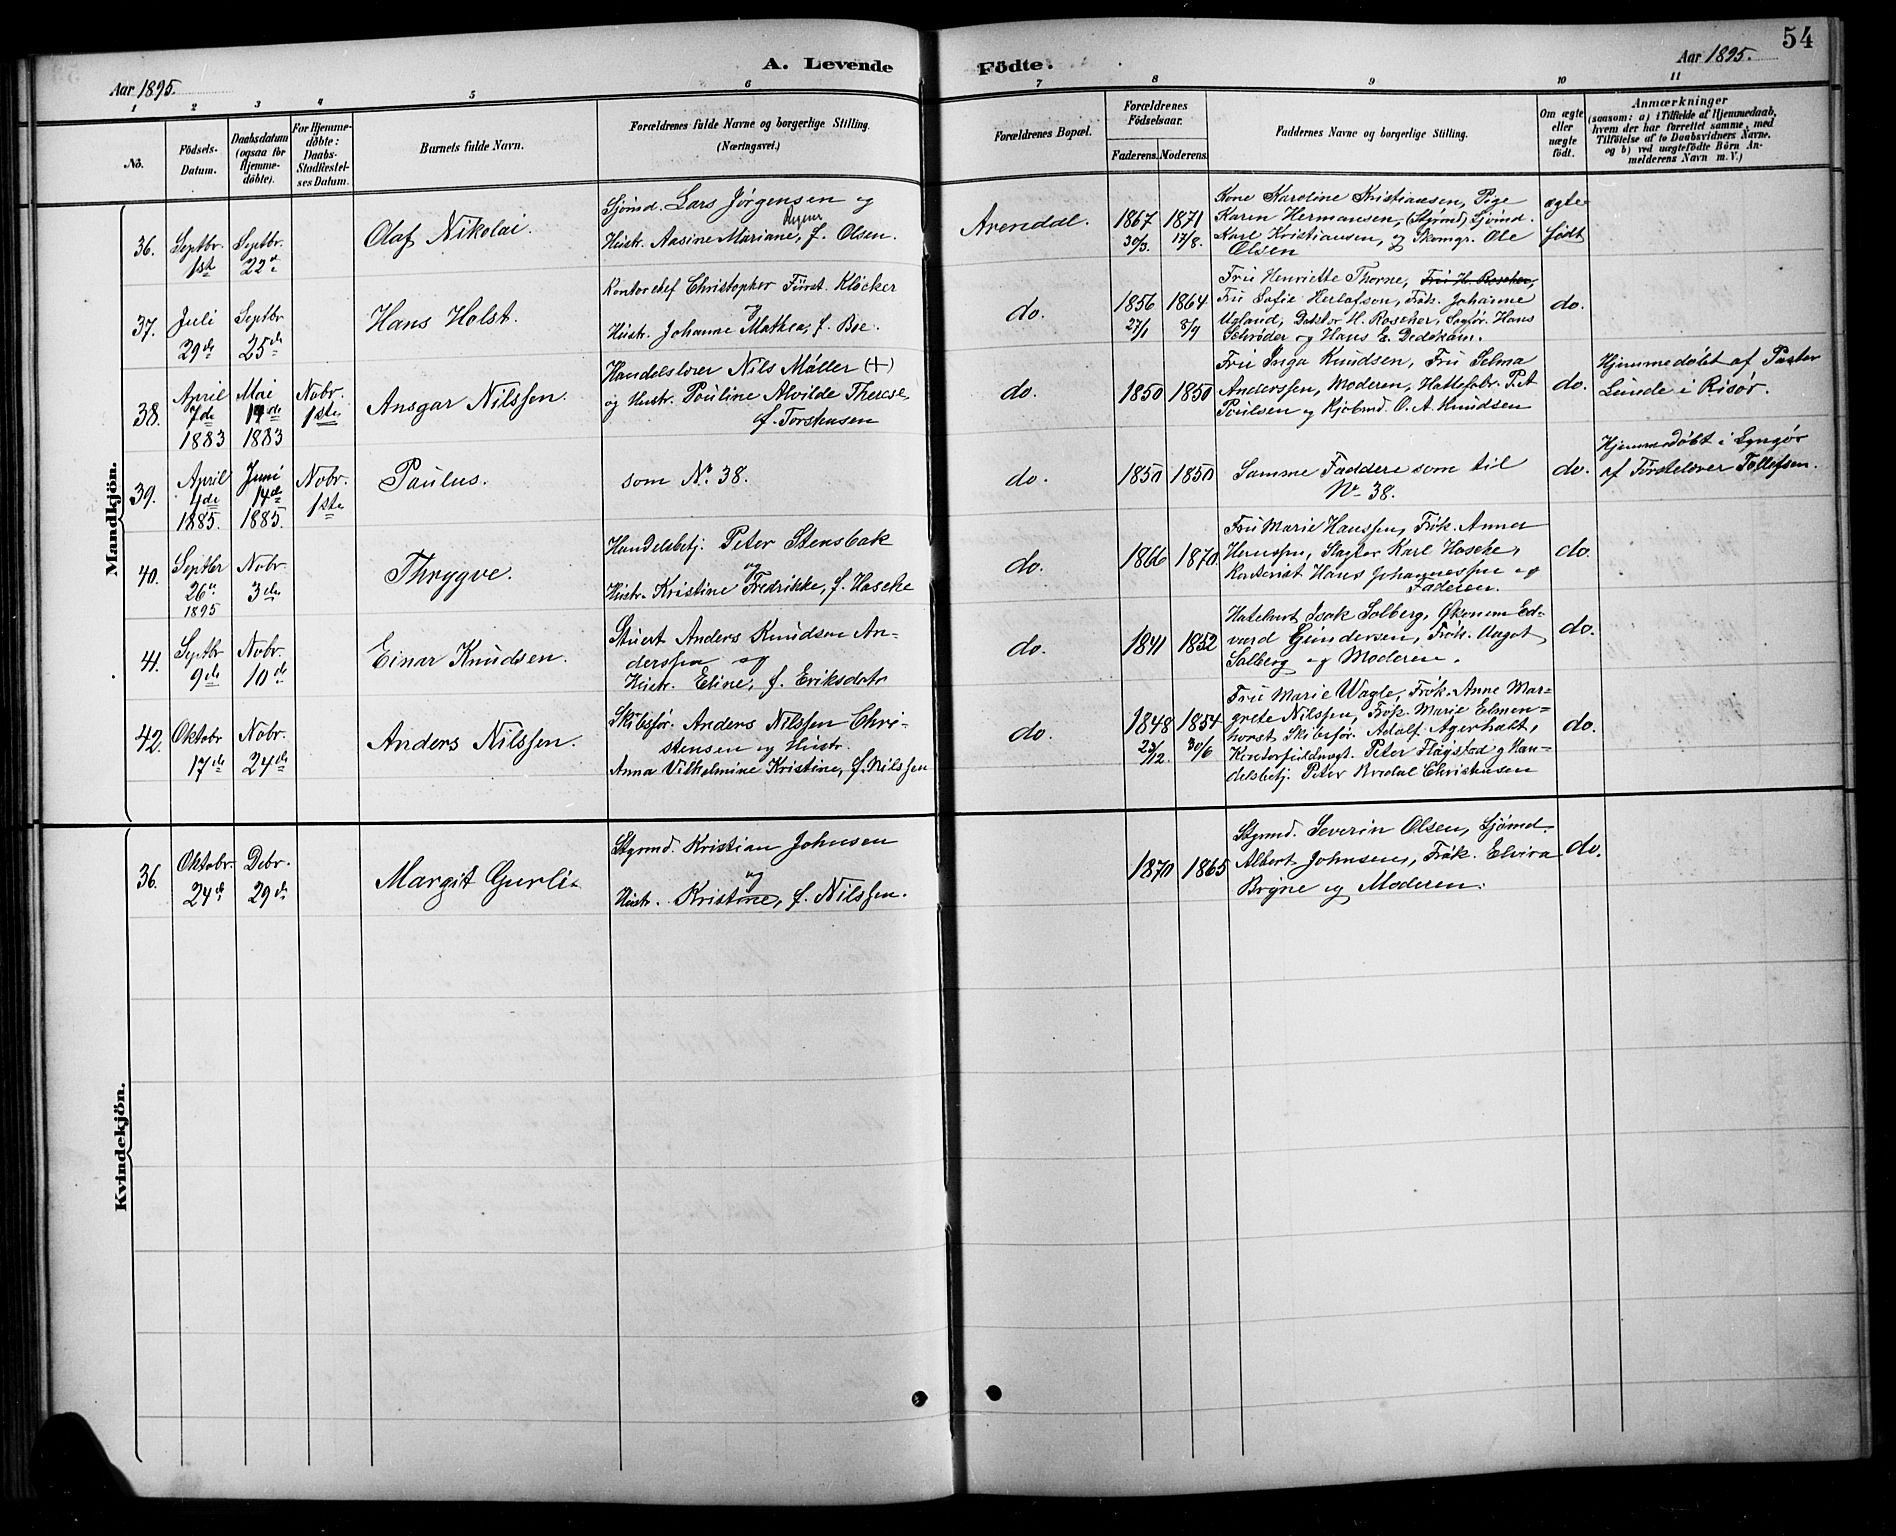 54
Aar 1895.
A. Levende
Födte.
Aar 1895.
1 2 3 4 5 6 7 8 9 10 11
No.
Födsels-
Datum.
Daabsdatum
(ogsaa for
Hjemme-
döbte).
For Hjemme-
döbte:
Daabs-
Stadfæstel-
ses Datum.
Barnets fulde Navn.
Forældrenes fulde Navne og borgerlige Stilling.
(Næringsvei.)
Forældrenes Bopæl.
Forældrenes
Födselsaar.
Faderens. Moderens.
Faddernes Navne og borgerlige Stilling.
Om ægte
eller
uægte
födt.
Anmærkninger
(saasom: a) i Tilfælde af Hjemmedaab,
hvem der har forrettet samme, med
Tilföielse af to Daabsvidners Navne.
og b) ved uægtefödte Börn An-
melderens Navn m. V.)
Mandkjön.
36.
Septbr.
1st
Septbr.
22d
Olaf Nikolai.
Sjömd. Lars Jørgensen og
Hustr. Aasine Mariane, f. Olsen.
Arendal.
1867
30/3.
1871
17/8.
Kone Karoline Kristiansen, Pige
Karen Hermansen, (Stømd) Sjömd.
Karl Kristiansen, og Skomgr. Ole
Olsen
ægte
født
37.
Juli
29de
Septbr
25de
Hans Holst.
Kontorchef Christopher Fürst Kløcker
og
Hustr. Johanne Mathea, f. Boe.
do.
1856
27/1
1864
8/9
Fru Henriette Thorne, Fru H. Roscher,
Fru Sofie Herlofson, Frøk. Johanne
Ugland, Doktor H. Roscher, Sagfør. Hans
Schrøder og Hans E. Dedekam.
do.
38.
April
7de
1883
Mai
14de
1883
Nobr.
1ste
Ansgar Nilssen.
Handelslærer Nils Møller (+)
og Hustr. Pouline Alvilde Therese
f. Torshusen
do.
1850
1850
Fru Inga Knudsen, Fru Selma
Anderssen, Moderen, Hattefabr. P. A
Poulsen og Kjøbmd. O. A. Knudsen
do.
Hjemmedøbt af Pastor
Lunde i Risør.
39.
April
4de
1885.
Juni
14de
1885.
Nobr.
1ste
Paulus.
som No. 38.
do.
1850
1850
Samme Faddere som til
No 38.
do.
Hjemmedøbt i Lyngør
af Førstelærer Tellefsen.
40.
Septbr
26de
1895
Nobr.
3die
Thrygve.
Handelsbetj. Peter Stensbak
og
Hustr. Kristine Fredrikke, f. Hascke
do.
1866
1870.
Fru Marie Hanssen, Frøk. Anna
Hanssen, Slagter Karl Hascke,
Kontorist Hans Johannessen og
Faderen.
do.
41.
Septbr
9de
Nobr.
10de
Einar Knudsen.
Stuert Anders Knudsen An-
derssen og
Hustr. Eline, f. Eriksdatr
do.
1841
1852
Isak Solberg, Økonom Ed-
vard Gundersen, Frøk. Aagot
Solberg og Moderen.
do.
42.
Oktobr
17de
Nobr.
24de
Anders Nilssen.
Skibsfør. Anders Nilssen Chri-
stensen og Hustr.
Anna Vilhelmine Kristine, f. Nilssen
do.
1848
23/12.
1854
30/6
Fru Marie Wagle, Frøk. Anne Mar-
grete Nilssen, Frøk. Marie Elmen-
horst Skibsfør. Adolf Agerholt,
Kontorfuldmægt. Peter Flagstad og Han-
delsbetj. Peter Bredal Christensen
do.
Kvindekjön.
36.
Oktobr.
24de
Debr.
29de
Margit Gurli.
Styrmd. Kristian Johnsen
og
Hustr. Kristine, f. Nilssen.
1870
1865
Styrmd. Severin Olsen, Sjömd
Albert Johnsen, Frøk. Elvira
Bryne og Moderen.
do.